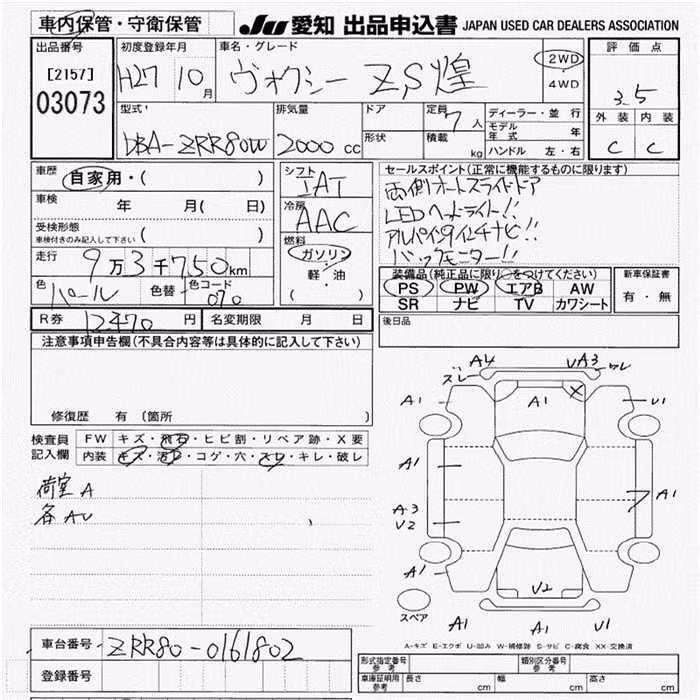 車内保管・守衛保管 JU 愛知 出品申込書 JAPAN USED CAR DEALERS ASSOCIATION
出品番号 初度登録年月 車名・グレード 評価点
[2157] H27 10月 ヴォクシー ZS煌 2WD・4WD 3.5
03073
型式 排気量 ドア 定員 7人 ディーラー・並行 外装 内装
DBA-ZRR80W 2000cc 形状 積載 kg モデル年式 年 C C
ハンドル 左・右
車歴 自家用・( ) シフト IAT セールスポイント(正常に機能するものに限ります)
車検 年 月( 日) 冷房 AAC 両側オートスライドドア
受検形態 ( ) LEDヘッドライト!!
車検付きのみ記入して下さい 燃料 アルパイン9インチナビ!!
走行 9万3千750km ガソリン・軽・油 バックモニター!!
( ) 装備品(純正品に限り○をつけてください) 新車保証書
色 パール 色替 色コード 070 PS PW エアB AW 有・無
SR ナビ TV カワシート
R券 12470円 名変期限 月 日 後日品
注意事項申告欄(不具合内容等は具体的に記入して下さい)
修復歴 有 (箇所 )
検査員記入欄 FW キズ・飛石・ヒビ割・リペア跡・X要
内装 キズ・汚レ・コゲ・穴・スレ・キレ・破レ
荷室A
各AU
A4 UA3
ズレ ワレ
A1 A1 X U1
A1 A1
A3
U2
A1 U2
A1 A1 U1
スペア
A-キズ E-エクボ U-凹み W-補修跡 S-サビ C-腐食 XX-交換済
車台番号 ZRR80-0161802
登録番号
型式指定番号参考 類別区分番号参考
車庫証明用参考 長さ cm 幅 cm 高さ cm